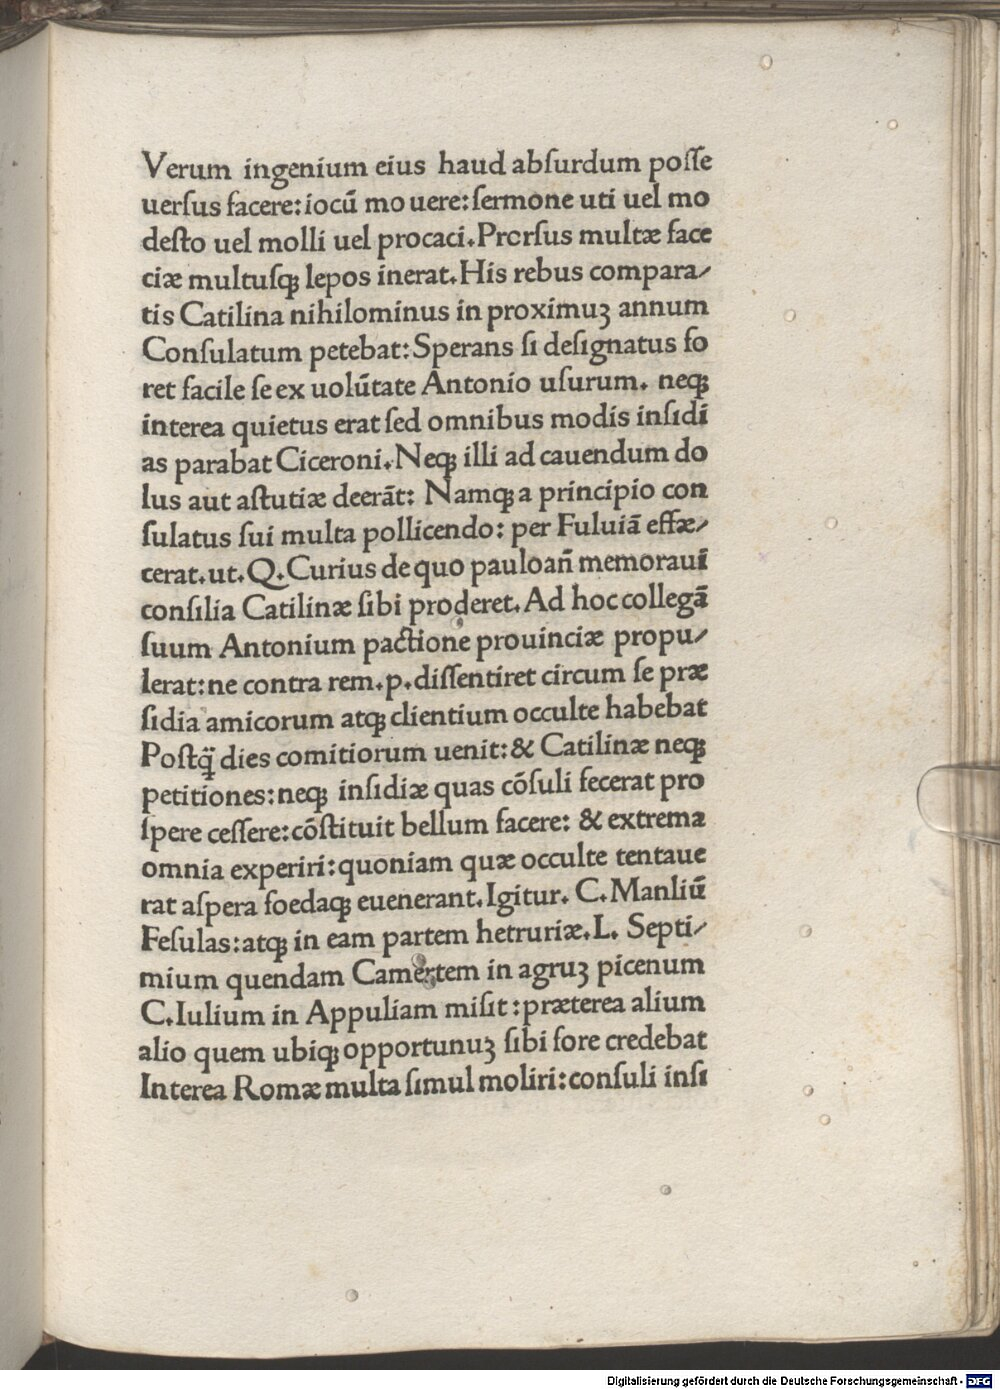 Verum ingenium eius haud abſurdum poſſe
uerſus facere: iocū mo uere: ſermone uti uel mo
deſto uel molli uel procaci. Prorſus multæ face
ciæ multuſqꝫ lepos inerat. His rebus compara⸗
tis Catilina nihilominus in proximuꝫ annum
Conſulatum petebat: Sperans ſi deſignatus fo
ret facile ſe ex uolūtate Antonio uſurum. neqꝫ
interea quietus erat ſed omnibus modis inſidi
as parabat Ciceroni. Neqꝫ illi ad cauendum do
lus aut aſtutiæ deerāt: Namqꝫ a principio con
ſulatus ſui multa pollicendo: per Fuluiā effæ⸗
cerat. ut. Q. Curius de quo pauloan̄ memoraui
conſilia Catilinæ ſibi proderet. Ad hoc collegā
ſuum Antonium pactione prouinciæ propu⸗
lerat: ne contra rem. p. diſſentiret circum ſe præ
ſidia amicorum atqꝫ clientium occulte habebat
Poſtq̄ dies comitiorum uenit: & Catilinæ neqꝫ
petitiones: neqꝫ inſidiæ quas cōſuli fecerat pro
ſpere ceſſere: cōſtituit bellum facere: & extrema
omnia experiri: quoniam quæ occulte tentaue
rat aſpera foedaqꝫ euenerant. Igitur. C. Manliū
Feſulas: atqꝫ in eam partem hetruriæ. L. Septi⸗
mium quendam Camertem in agruꝫ picenum
C. Iulium in Appuliam miſit: præterea alium
alio quem ubiqꝫ opportunuꝫ ſibi fore credebat
Interea Romæ multa ſimul moliri: conſuli inſi
Digitalisierung gefördert durch die Deutsche Forschungsgemeinschaft - DFG